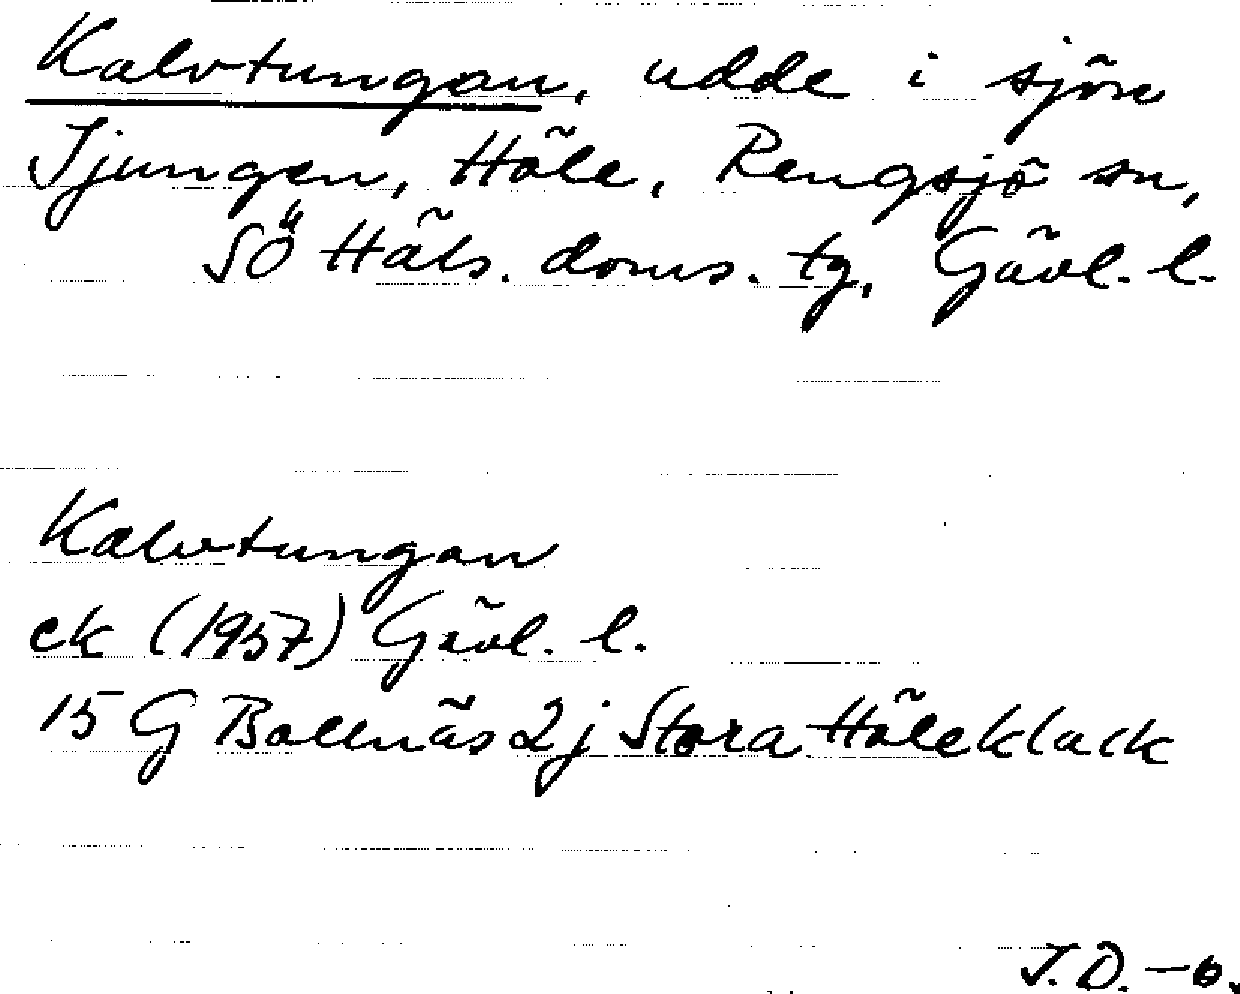 Kalvtungan, udde i sjön
Tjungen, Häle, Rengsjö sn,
SÖ Häls. doms. tg, Gävl. l.
Kalvtungan
ek (1957) Gävl. l.
15 G Bollnäs 2j Stora Häleklack
J.D.-o.